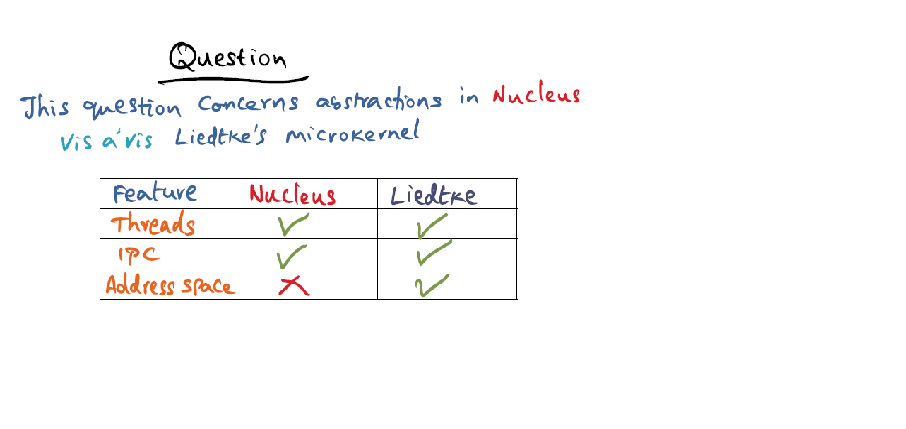 Question
This question concerns abstractions in Nucleus
vis a'vis Liedtke's microkernel
Feature Nucleus Liedtke
Threads ✓ ✓
IPC ✓ ✓
Address space ✗ ✓